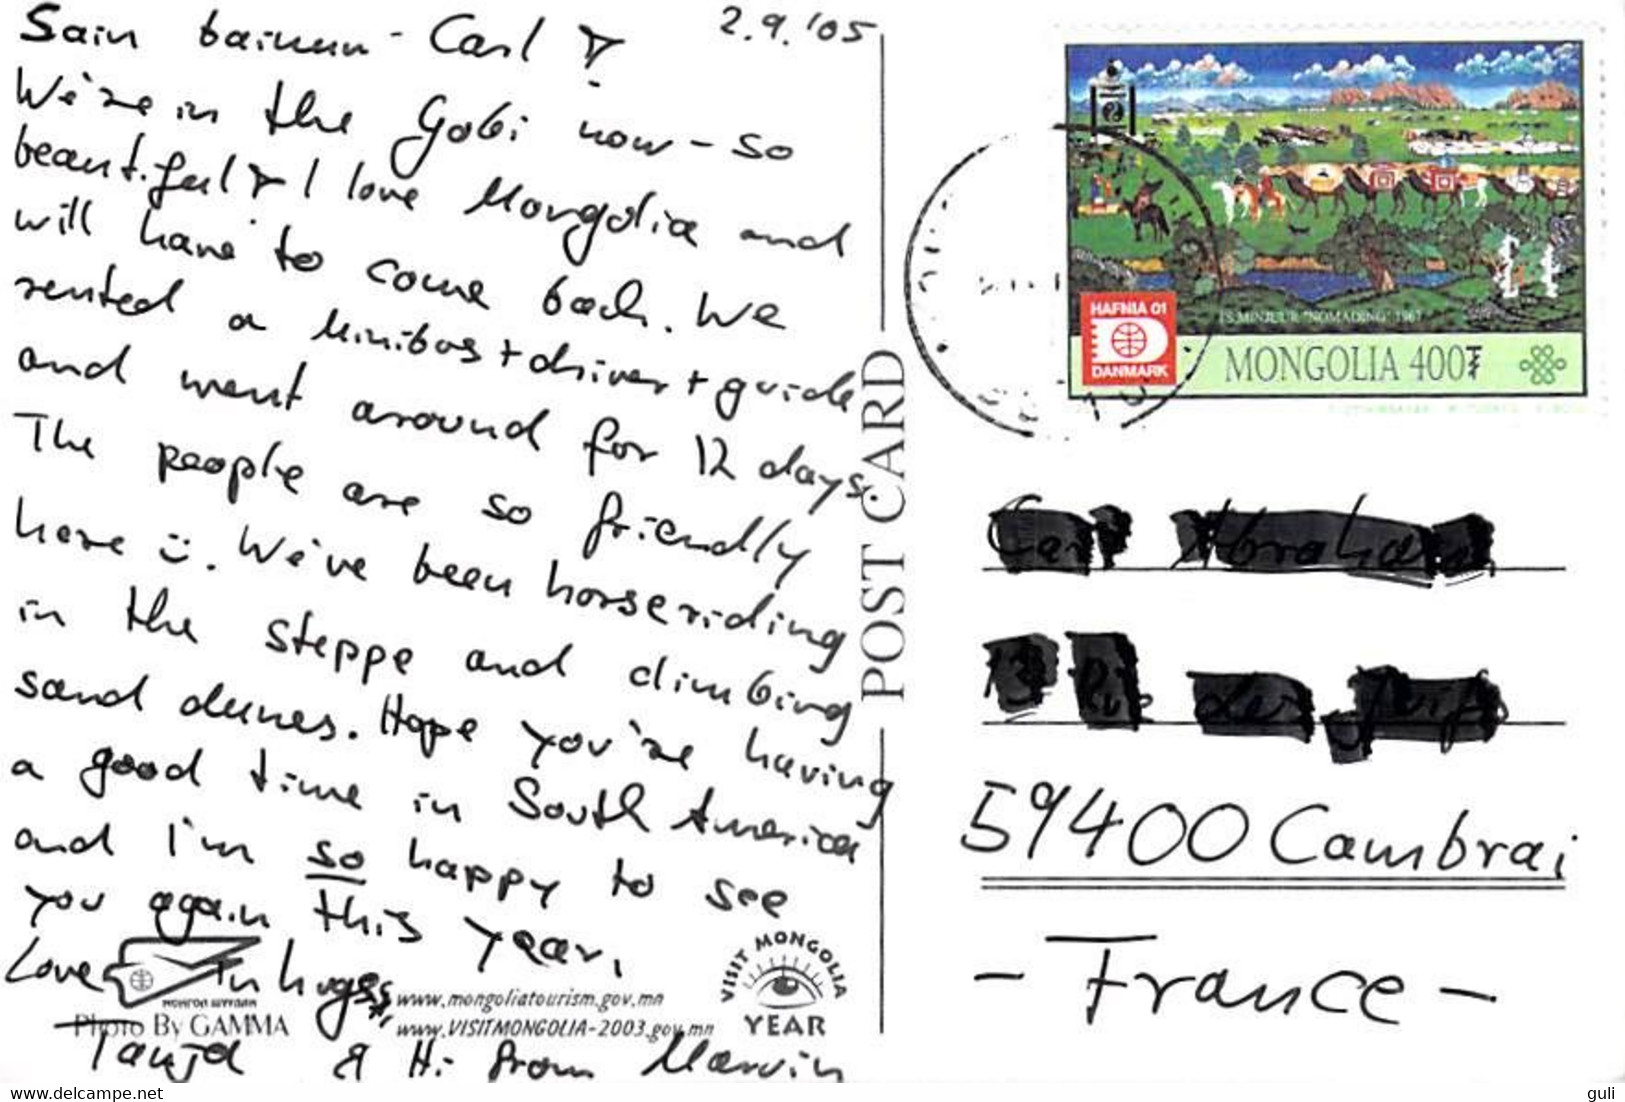 2.9.'05
Sain bainuu - Carl
We're in the Gobi now - so
beautiful! I love Mongolia and
will have to come back. We
rented a Minibus + driver + guide
and went around for 12 days.
The people are so friendly
here ü. We've been horseriding
in the steppe and climbing
sand dunes. Hope you're having
a good time in South America
and I'm so happy to see
you again this year,
Love 'n hugs,
Tanja & Hi from Marvin
Photo By GAMMA
www.mongoliatourism.gov.mn
www.VISITMONGOLIA-2003.gov.mn
VISIT MONGOLIA
YEAR
POST CARD
HAFNIA 01
DANMARK
"NOMADING" 1967
MONGOLIA 400₮
59400 Cambrai
- France -
https://www.delcampe.net
guli